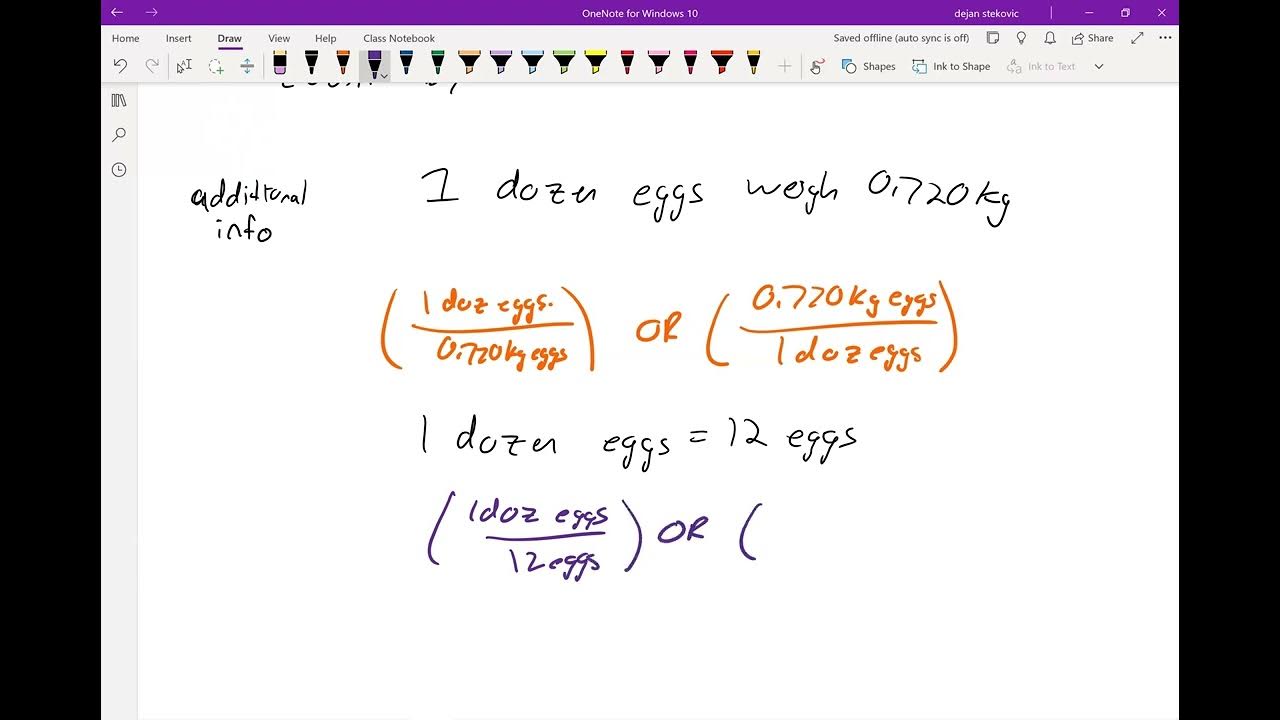 OneNote for Windows 10
dejan stekovic
Home Insert Draw View Help Class Notebook
Saved offline (auto sync is off) Share
Shapes Ink to Shape Ink to Text
additional
info
1 dozen eggs weigh 0.720 kg
(1 doz eggs. / 0.720 kg eggs) OR (0.720 kg eggs / 1 doz eggs)
1 dozen eggs = 12 eggs
(1 doz eggs / 12 eggs) OR (